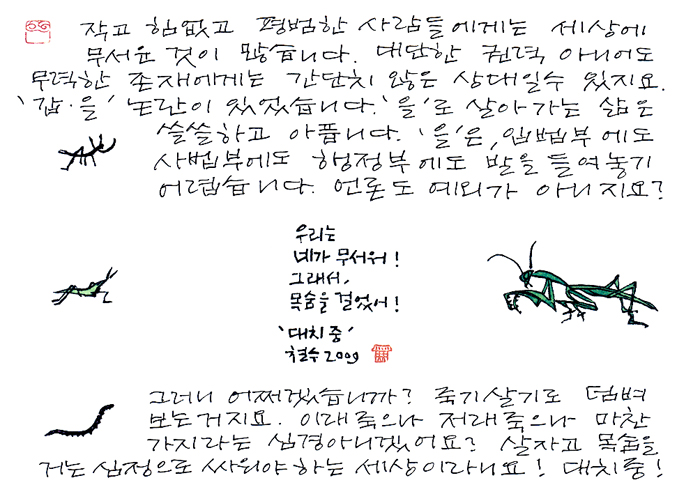 작고 힘없고 평범한 사람들에게는 세상에
무서운 것이 많습니다. 대단한 권력 아니어도
무력한 존재에게는 간단치 않은 상대일수 있지요.
'갑·을' 논란이 있었습니다. '을'로 살아가는 삶은
쓸쓸하고 아픕니다. '을'은, 입법부에도
사법부에도 행정부에도 발을 들여놓기
어렵습니다. 언론도 예외가 아니지요?
우리는
네가 무서워!
그래서,
목숨을 걸었어!
'대치중'
철수 2009
그러니 어쩌겠습니까? 죽기살기로 덤벼
보는거지요. 이래죽으나 저래죽으나 마찬
가지라는 심경아니겠어요? 살자고 목숨을
거는 심정으로 싸워야 하는 세상이라니요! 대치중!